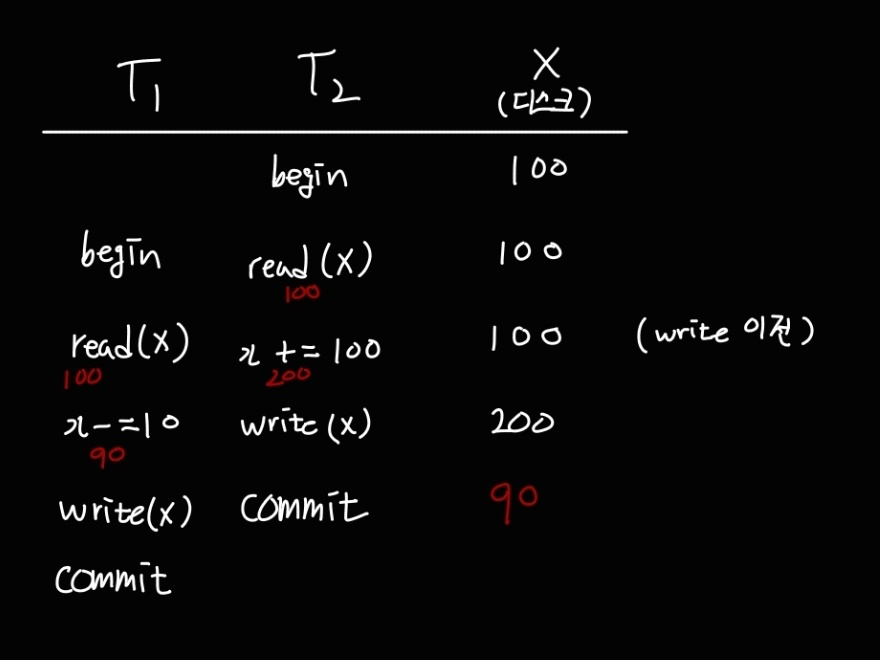 T1 T2 X
(디스크)
begin 100
begin read(X) 100
100
read(X) x += 100 100 (write 이전)
100 200
x-=10 write(x) 200
90
write(x) commit 90
commit